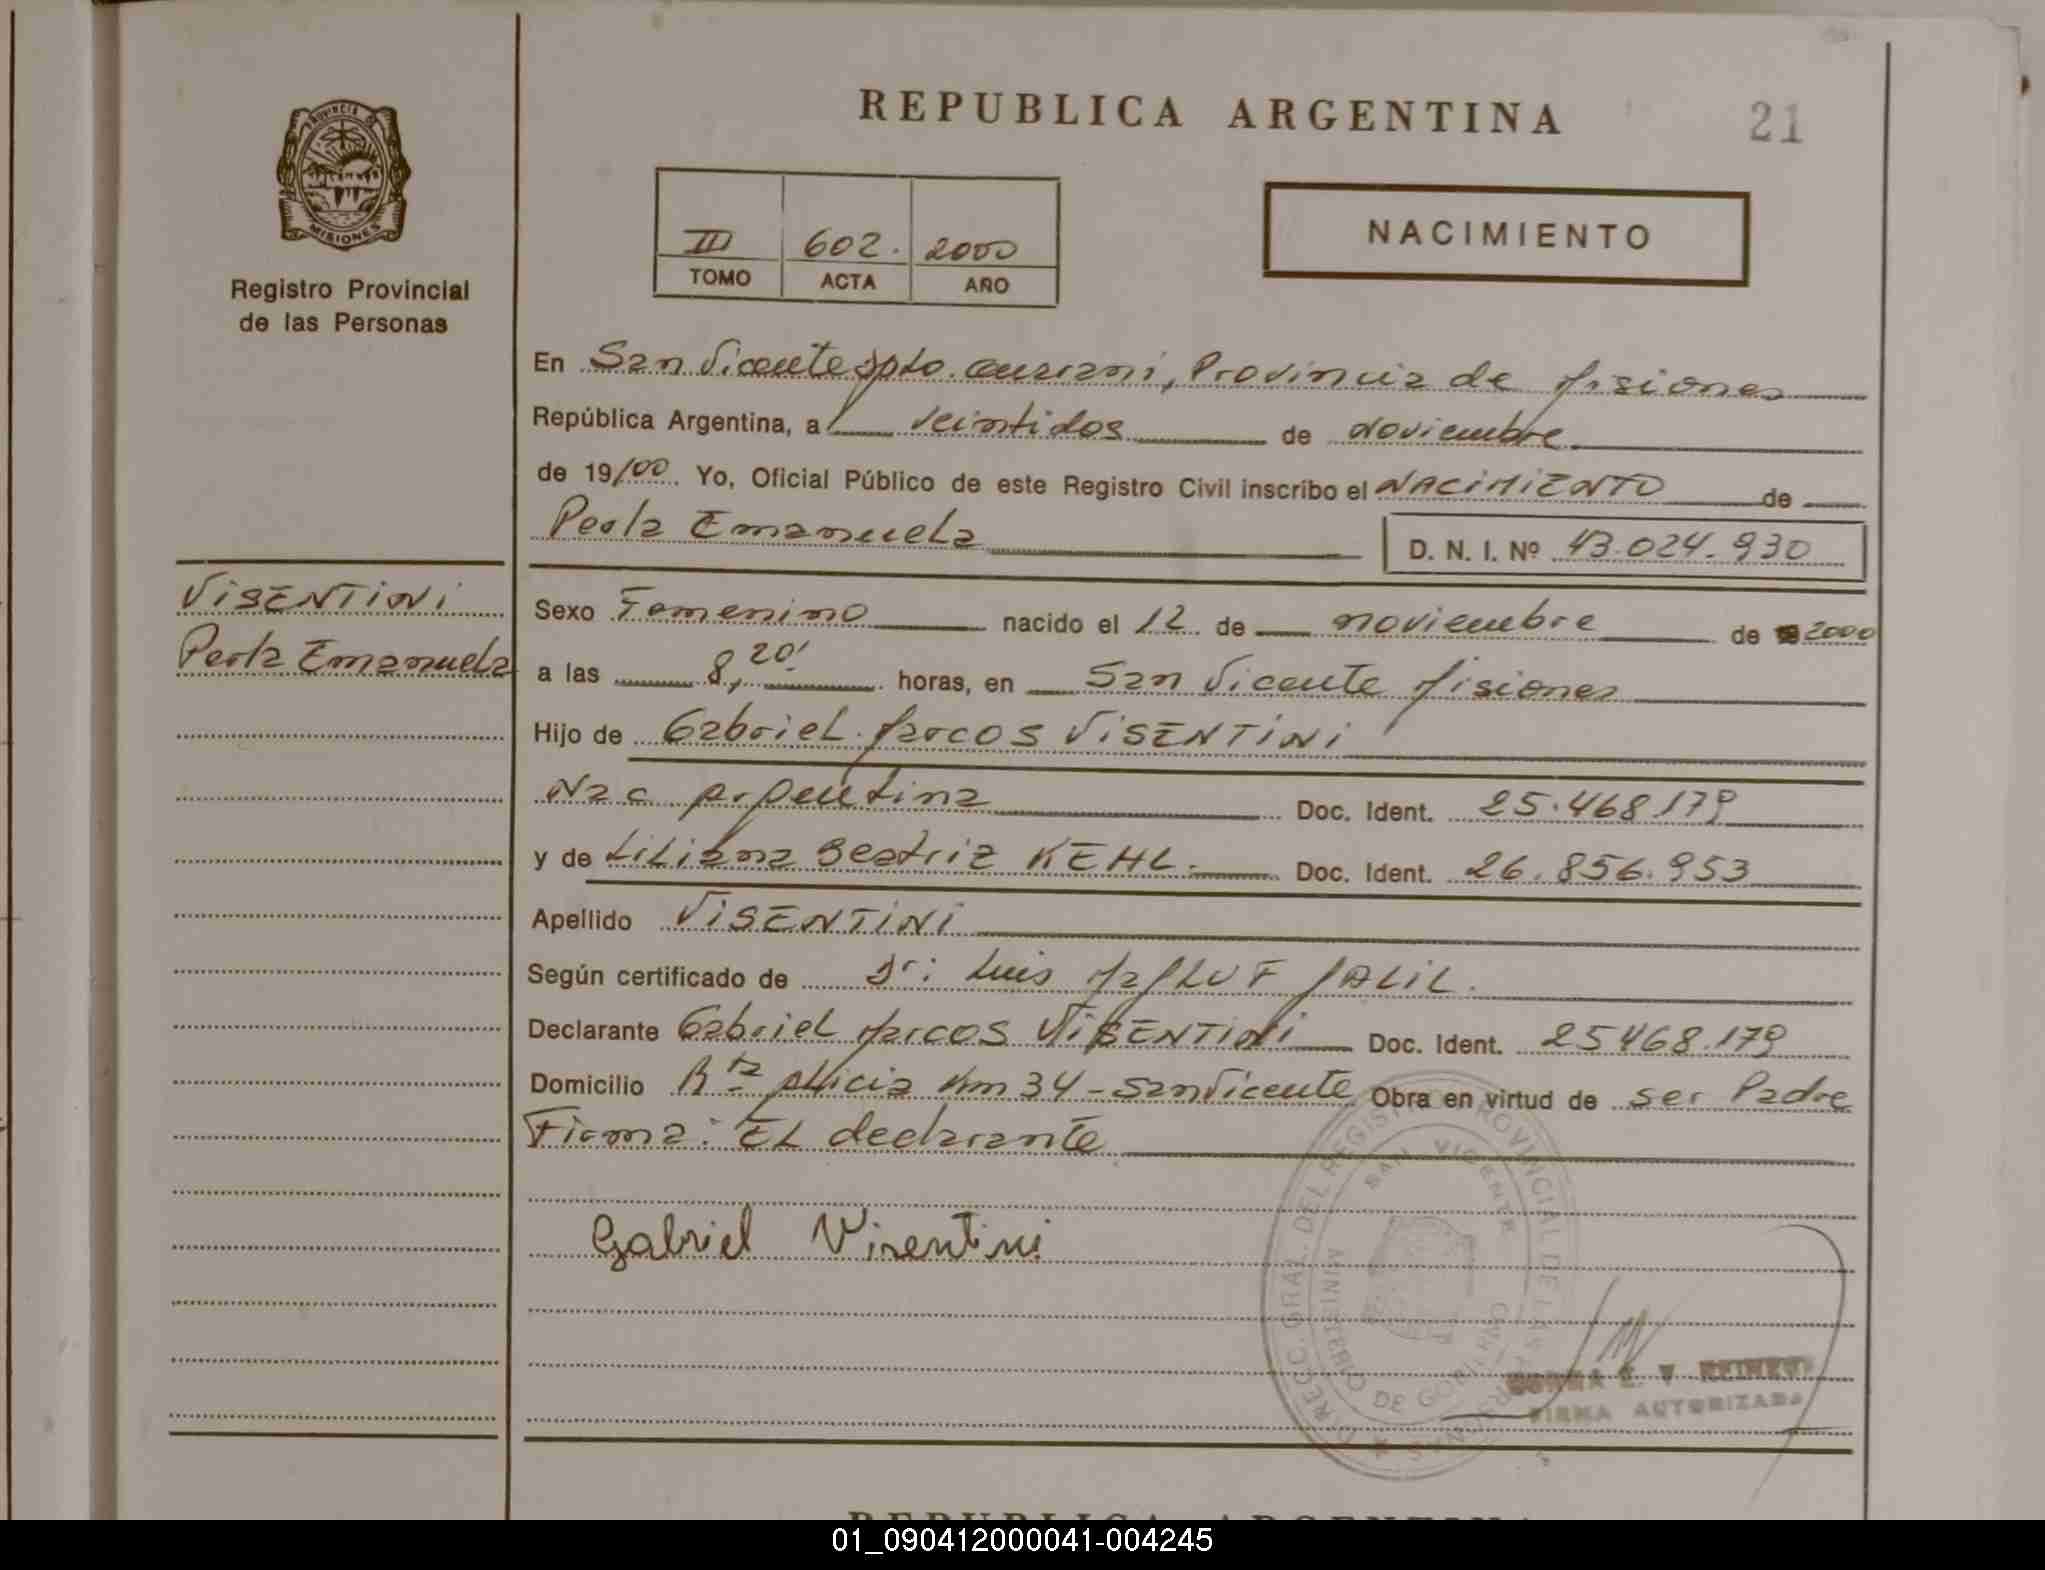 REPUBLICA ARGENTINA
21
PROVINCIA DE MISIONES
Registro Provincial
de las Personas
III 602. 2000
TOMO ACTA AÑO
NACIMIENTO
En San Vicente Dpto. Guaraní, Provincia de Misiones
República Argentina, a veintidos de Noviembre
de 19/00 Yo, Oficial Público de este Registro Civil inscribo el NACIMIENTO de
Perla Emanuela D. N. I. Nº 43.024.930
VISENTINI
Perla Emanuela
Sexo Femenino nacido el 12 de noviembre de 2000
a las 8,20' horas, en San Vicente Misiones
Hijo de Gabriel Marcos VISENTINI
Nac Argentina Doc. Ident. 25.468.179
y de Liliana Beatriz KEHL. Doc. Ident. 26.856.953
Apellido VISENTINI
Según certificado de Dr: Luis MALIL.
Declarante Gabriel Marcos VISENTINI Doc. Ident. 25468.179
Domicilio Rta Alicia Km 34 - San Vicente Obra en virtud de ser Padre
Firma: El declarante
Gabriel Visentini
DIRECC. GRAL. DEL REGISTRO PROVINCIAL DE LAS PERSONAS
SAN VICENTE
MINISTERIO DE GOBIERNO
NORMA E. V.
FIRMA AUTORIZADA
REPUBLICA ARGENTINA
01_090412000041-004245